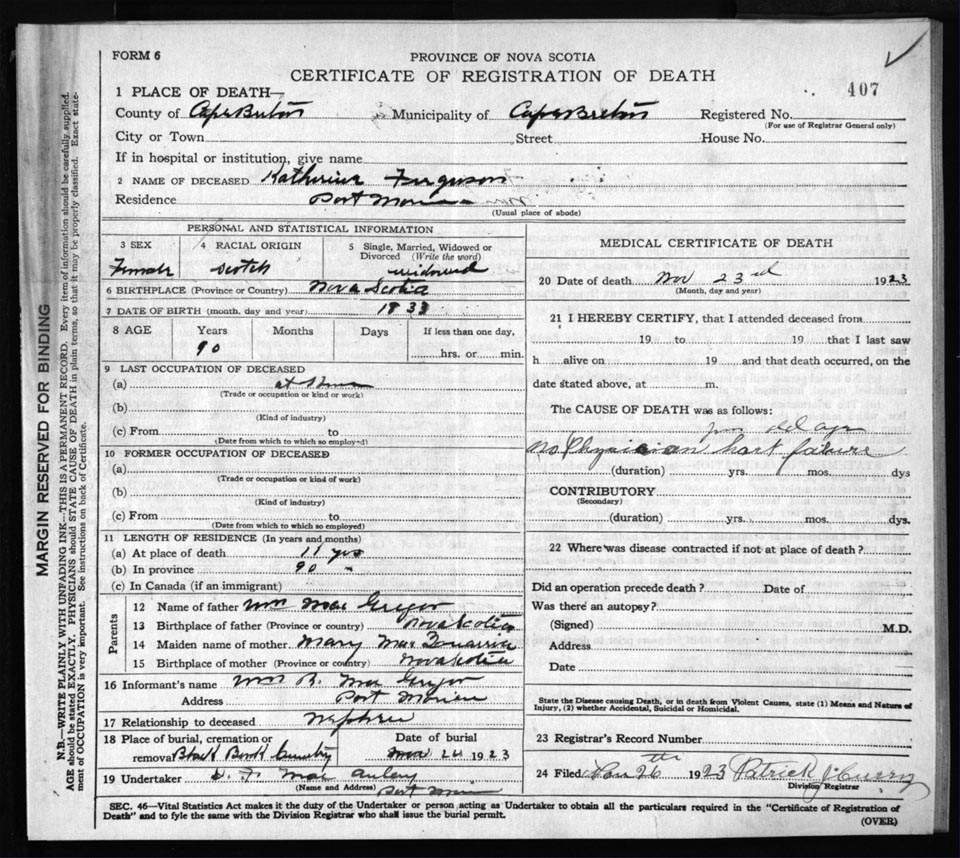 FORM 6
PROVINCE OF NOVA SCOTIA
CERTIFICATE OF REGISTRATION OF DEATH
407
1 PLACE OF DEATH—
County of Cape Breton Municipality of Cape Breton Registered No.
(For use of Registrar General only)
City or Town Street House No.
If in hospital or institution, give name
2 NAME OF DECEASED Katherine Ferguson
Residence Port Morien
(Usual place of abode)
PERSONAL AND STATISTICAL INFORMATION
3 SEX 4 RACIAL ORIGIN 5 Single, Married, Widowed or
Divorced (Write the word)
Female Scotch widowed
6 BIRTHPLACE (Province or Country) Nova Scotia
7 DATE OF BIRTH (month, day and year) 1833
8 AGE Years Months Days If less than one day,
90 hrs. or min.
9 LAST OCCUPATION OF DECEASED
(a) at Home
(Trade or occupation or kind or work)
(b)
(Kind of industry)
(c) From to
(Date from which to which so employed)
10 FORMER OCCUPATION OF DECEASED
(a)
(Trade or occupation or kind of work)
(b)
(Kind of industry)
(c) From to
(Date from which to which so employed)
11 LENGTH OF RESIDENCE (In years and months)
(a) At place of death 11 yrs
(b) In province 90 "
(c) In Canada (if an immigrant)
Parents
12 Name of father Wm Mac Gregor
13 Birthplace of father (Province or country) Nova Scotia
14 Maiden name of mother Mary Mac
15 Birthplace of mother (Province or country) Nova Scotia
16 Informant's name Wm R. Mac Gregor
Address Port Morien
17 Relationship to deceased Nephew
18 Place of burial, cremation or Date of burial
removal Black Brook Cemetery Nov 24 1923
19 Undertaker D. F. Mac Aulay
(Name and Address) Port Morien
MEDICAL CERTIFICATE OF DEATH
20 Date of death Nov 23rd 1923
(Month, day and year)
21 I HEREBY CERTIFY, that I attended deceased from
19 to 19 that I last saw
h alive on 19 and that death occurred, on the
date stated above, at m.
The CAUSE OF DEATH was as follows:
old age
No Physician hart failure
(duration) yrs. mos. dys
CONTRIBUTORY
(Secondary)
(duration) yrs. mos. dys.
22 Where was disease contracted if not at place of death?
Did an operation precede death? Date of
Was there an autopsy?
(Signed) M.D.
Address
Date
State the Disease causing Death, or in death from Violent Causes, state (1) Means and Nature of
Injury, (2) whether Accidental, Suicidal or Homicidal.
23 Registrar's Record Number
24 Filed 26th 1923 Patrick J Curry
Division Registrar
SEC. 46—Vital Statistics Act makes it the duty of the Undertaker or person acting as Undertaker to obtain all the particulars required in the "Certificate of Registration of
Death" and to fyle the same with the Division Registrar who shall issue the burial permit.
(OVER)
MARGIN RESERVED FOR BINDING
N.B.—WRITE PLAINLY WITH UNFADING INK—THIS IS A PERMANENT RECORD. Every item of information should be carefully supplied.
AGE should be stated EXACTLY. PHYSICIANS should STATE CAUSE OF DEATH in plain terms, so that it may be properly classified. Exact state-
ment of OCCUPATION is very important. See instructions on back of Certificate.